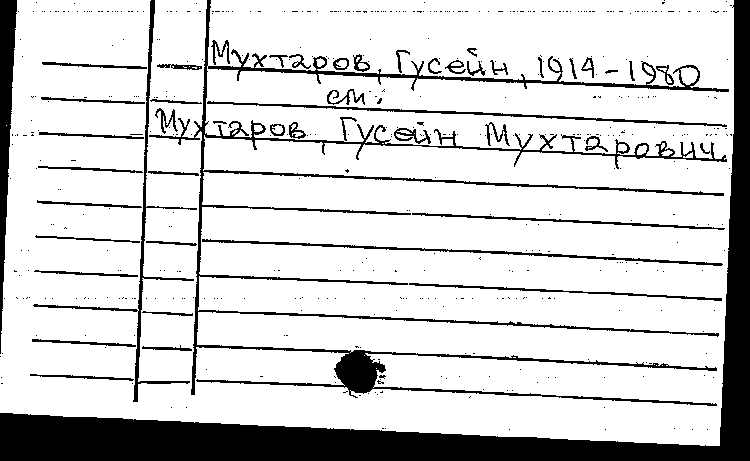 Мухтаров, Гусейн, 1914-1980
см:
Мухтаров, Гусейн Мухтарович.